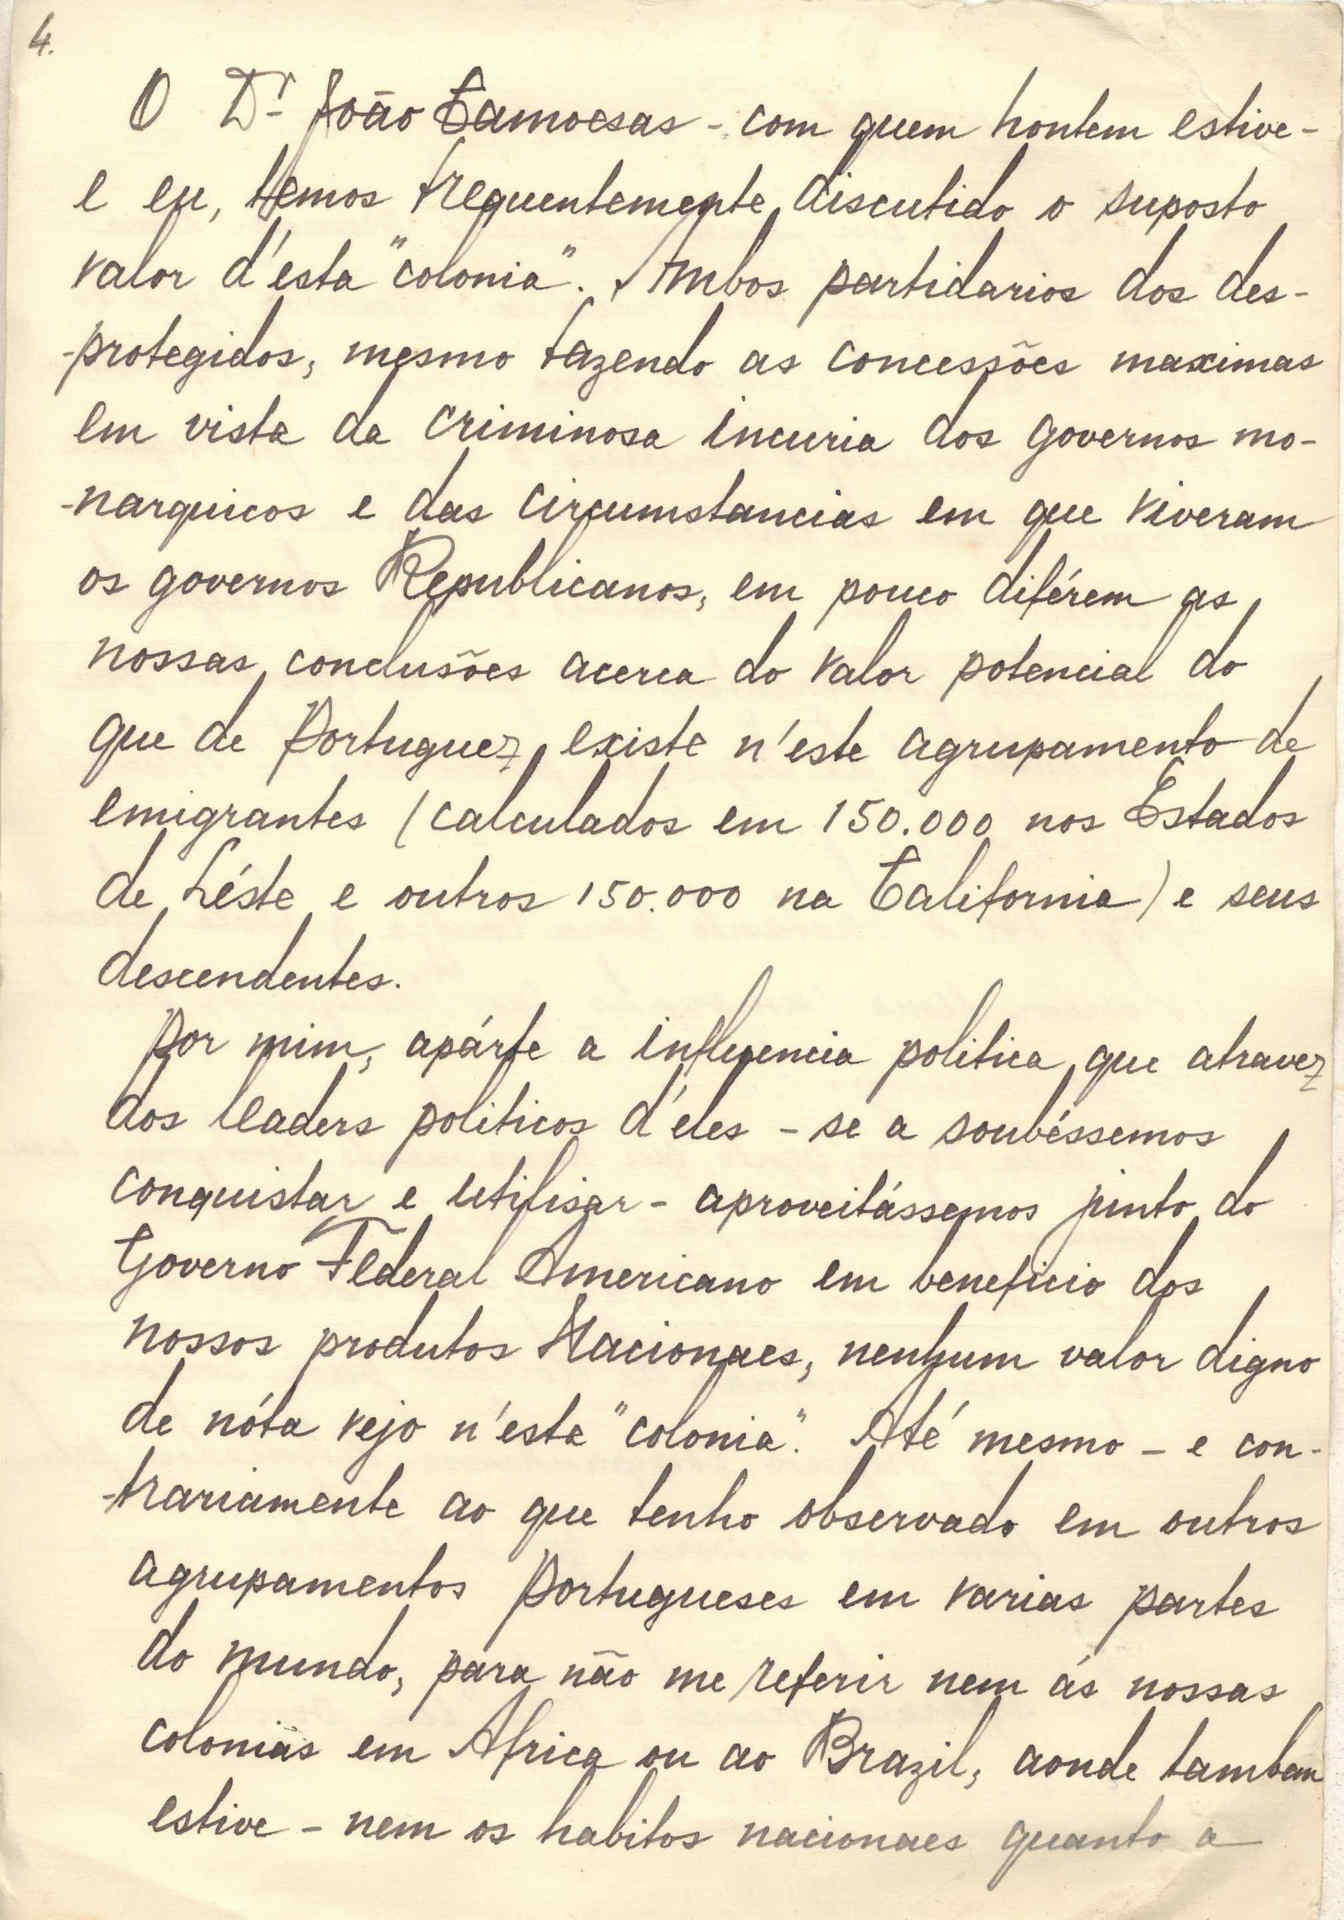 4.
O Dr João Camoesas - com quem hontem estive -
e eu, temos frequentemente discutido o suposto
valor d'esta "colonia". Ambos partidarios dos des-
-protegidos, mesmo fazendo as concessões maximas
em vista da criminosa incuria dos governos mo-
-narquicos e das circumstancias em que viveram
os governos Republicanos, em pouco diférem as
nossas conclusões acerca do valor potencial do
que de Portuguez existe n'este agrupamento de
emigrantes (calculados em 150.000 nos Estados
de Léste e outros 150.000 na California) e seus
descendentes.
Por mim, apárte a influencia politica que atravez
dos leaders politicos d'eles - se a soubéssemos
conquistar e utilisar - aproveitássemos junto do
Governo Federal Americano em beneficio dos
nossos produtos Nacionaes, nenhum valor digno
de nóta vejo n'esta "colonia". Até mesmo - e con-
-trariamente ao que tenho observado em outros
agrupamentos Portugueses em varias partes
do mundo, para não me referir nem ás nossas
colonias em Africa ou ao Brazil, aonde tambem
estive - nem os habitos nacionaes quanto a